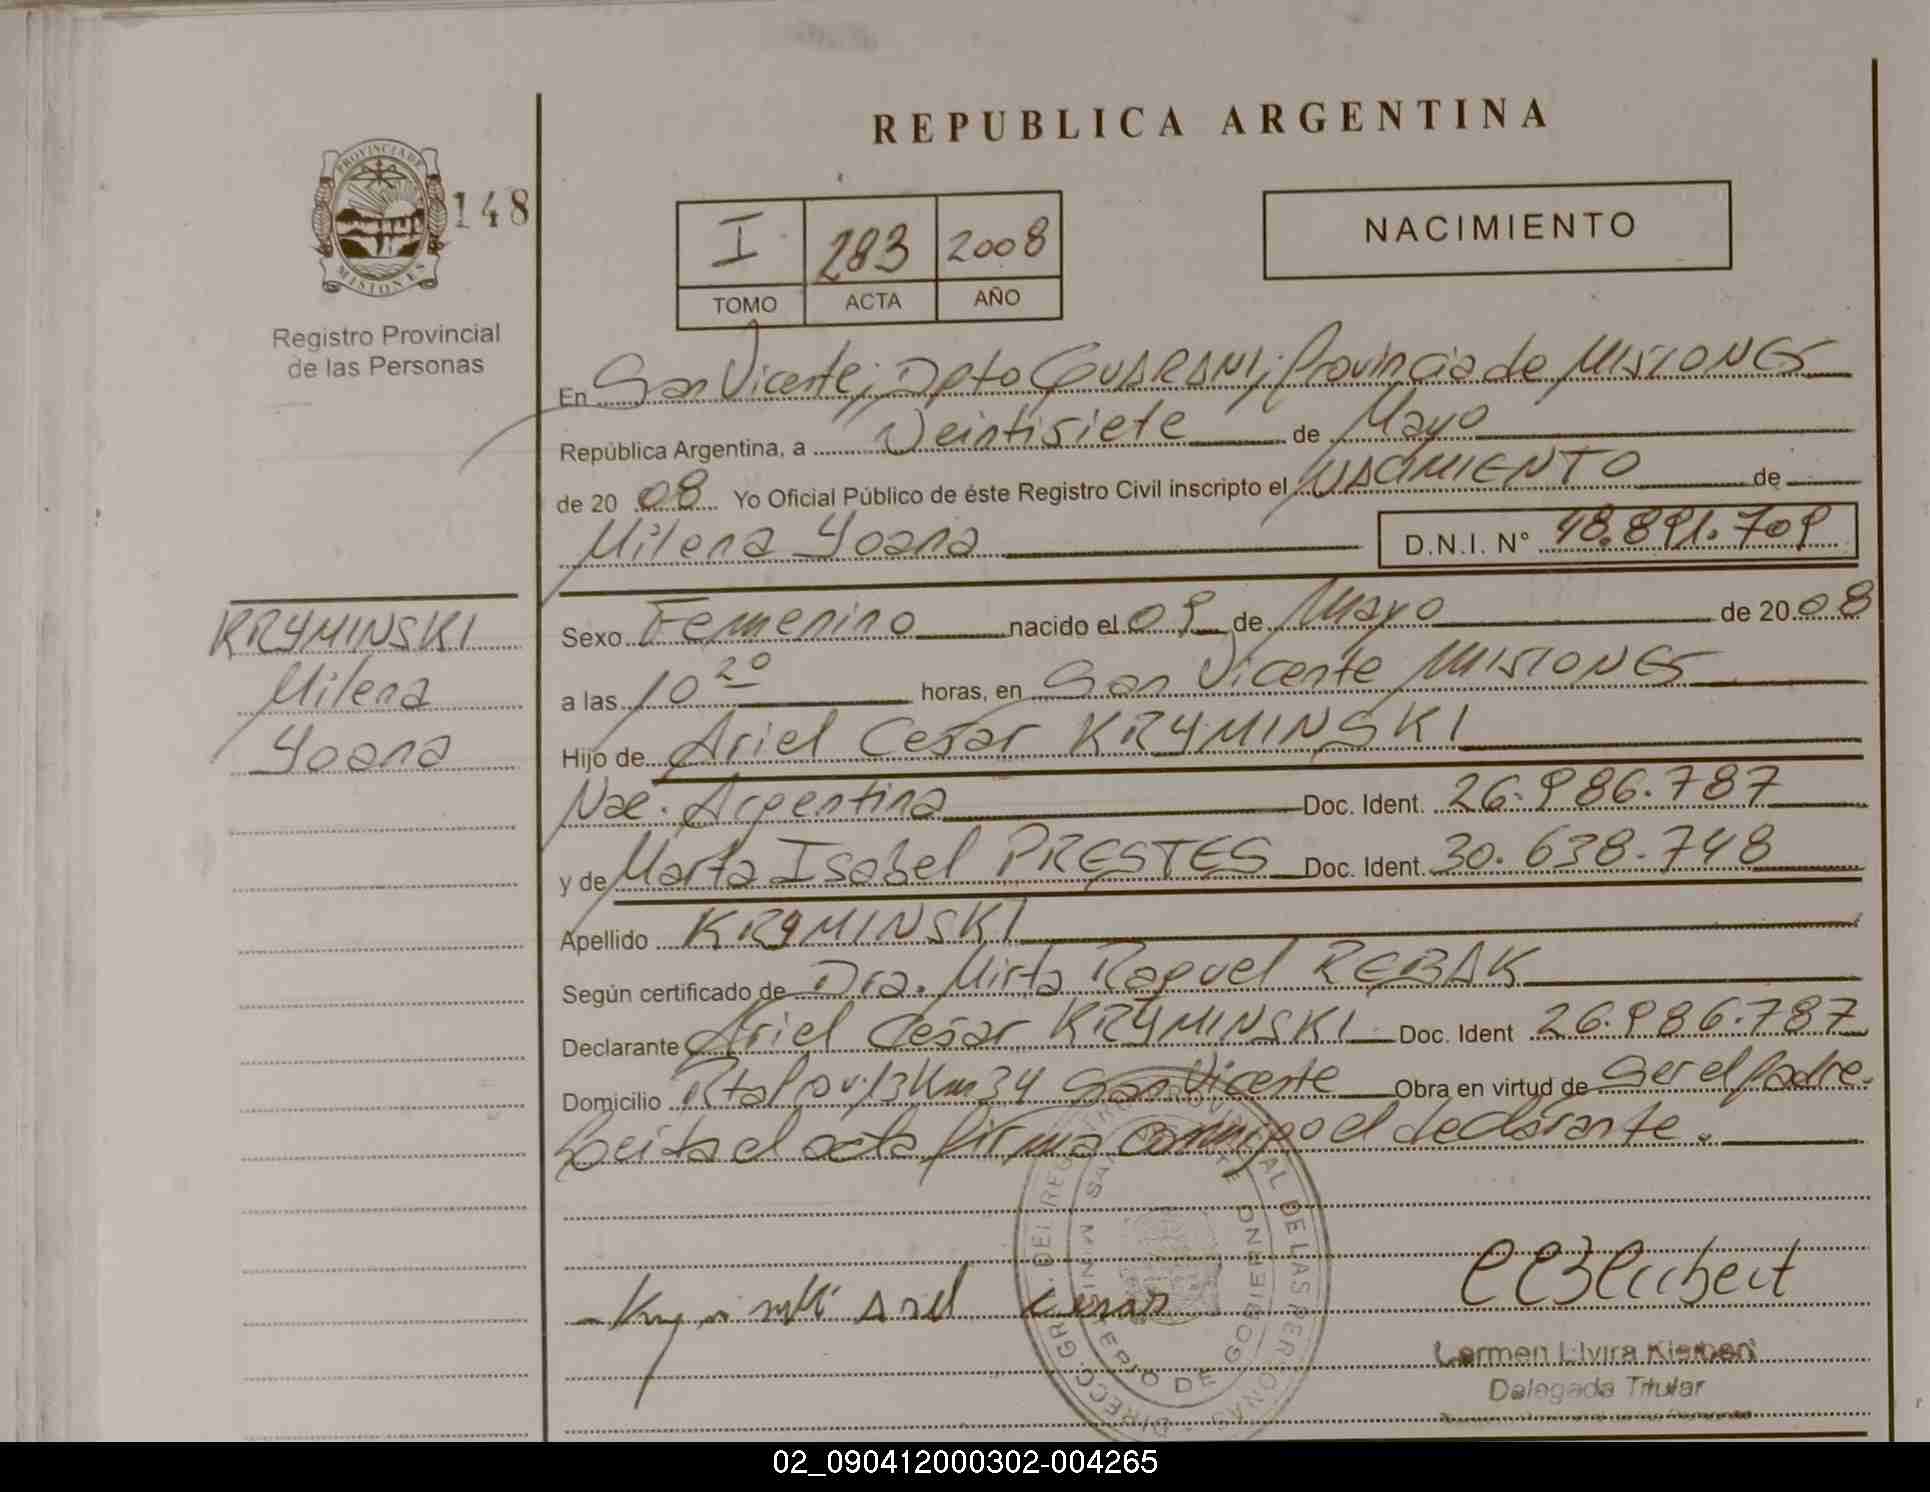 REPUBLICA ARGENTINA
PROVINCIA DE
MISIONES
148
Registro Provincial
de las Personas
I 283 2008
TOMO ACTA AÑO
NACIMIENTO
En San Vicente; Dpto GUARANI; Provincia de MISIONES
República Argentina, a Veintisiete de Mayo
de 20 08 Yo Oficial Público de éste Registro Civil inscripto el NACIMIENTO de
Milena Yoana D.N.I. N° 48.891.709
KRYMINSKI
Milena
Yoana
Sexo Femenino nacido el 09 de Mayo de 20 08
a las 10 20 horas, en San Vicente MISIONES
Hijo de Ariel Cesar KRYMINSKI
Nac. Argentina Doc. Ident. 26.986.787
y de Marta Isabel PRESTES Doc. Ident. 30.638.748
Apellido KRYMINSKI
Según certificado de Dra. Mirta Raquel REBAK
Declarante Ariel Cesar KRYMINSKI Doc. Ident 26.986.787
Domicilio Km 34 San Vicente Obra en virtud de Ser el Padre.
Leida el acta firma conmigo el declarante.
DIRECC. GRL. DEL REGISTRO PROVINCIAL DE LAS PERSONAS
MINISTERIO DE GOBIERNO
Ariel Cesar
Carmen Elvira
Delegada Titular
02_090412000302-004265